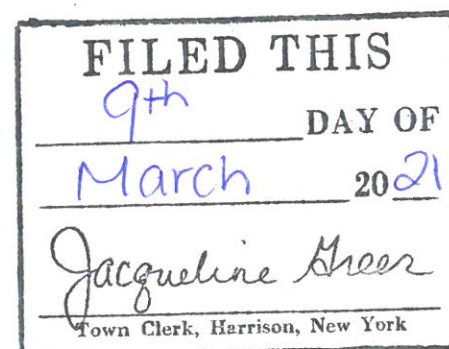 FILED THIS
9th DAY OF
March 2021
Jacqueline Greer
Town Clerk, Harrison, New York